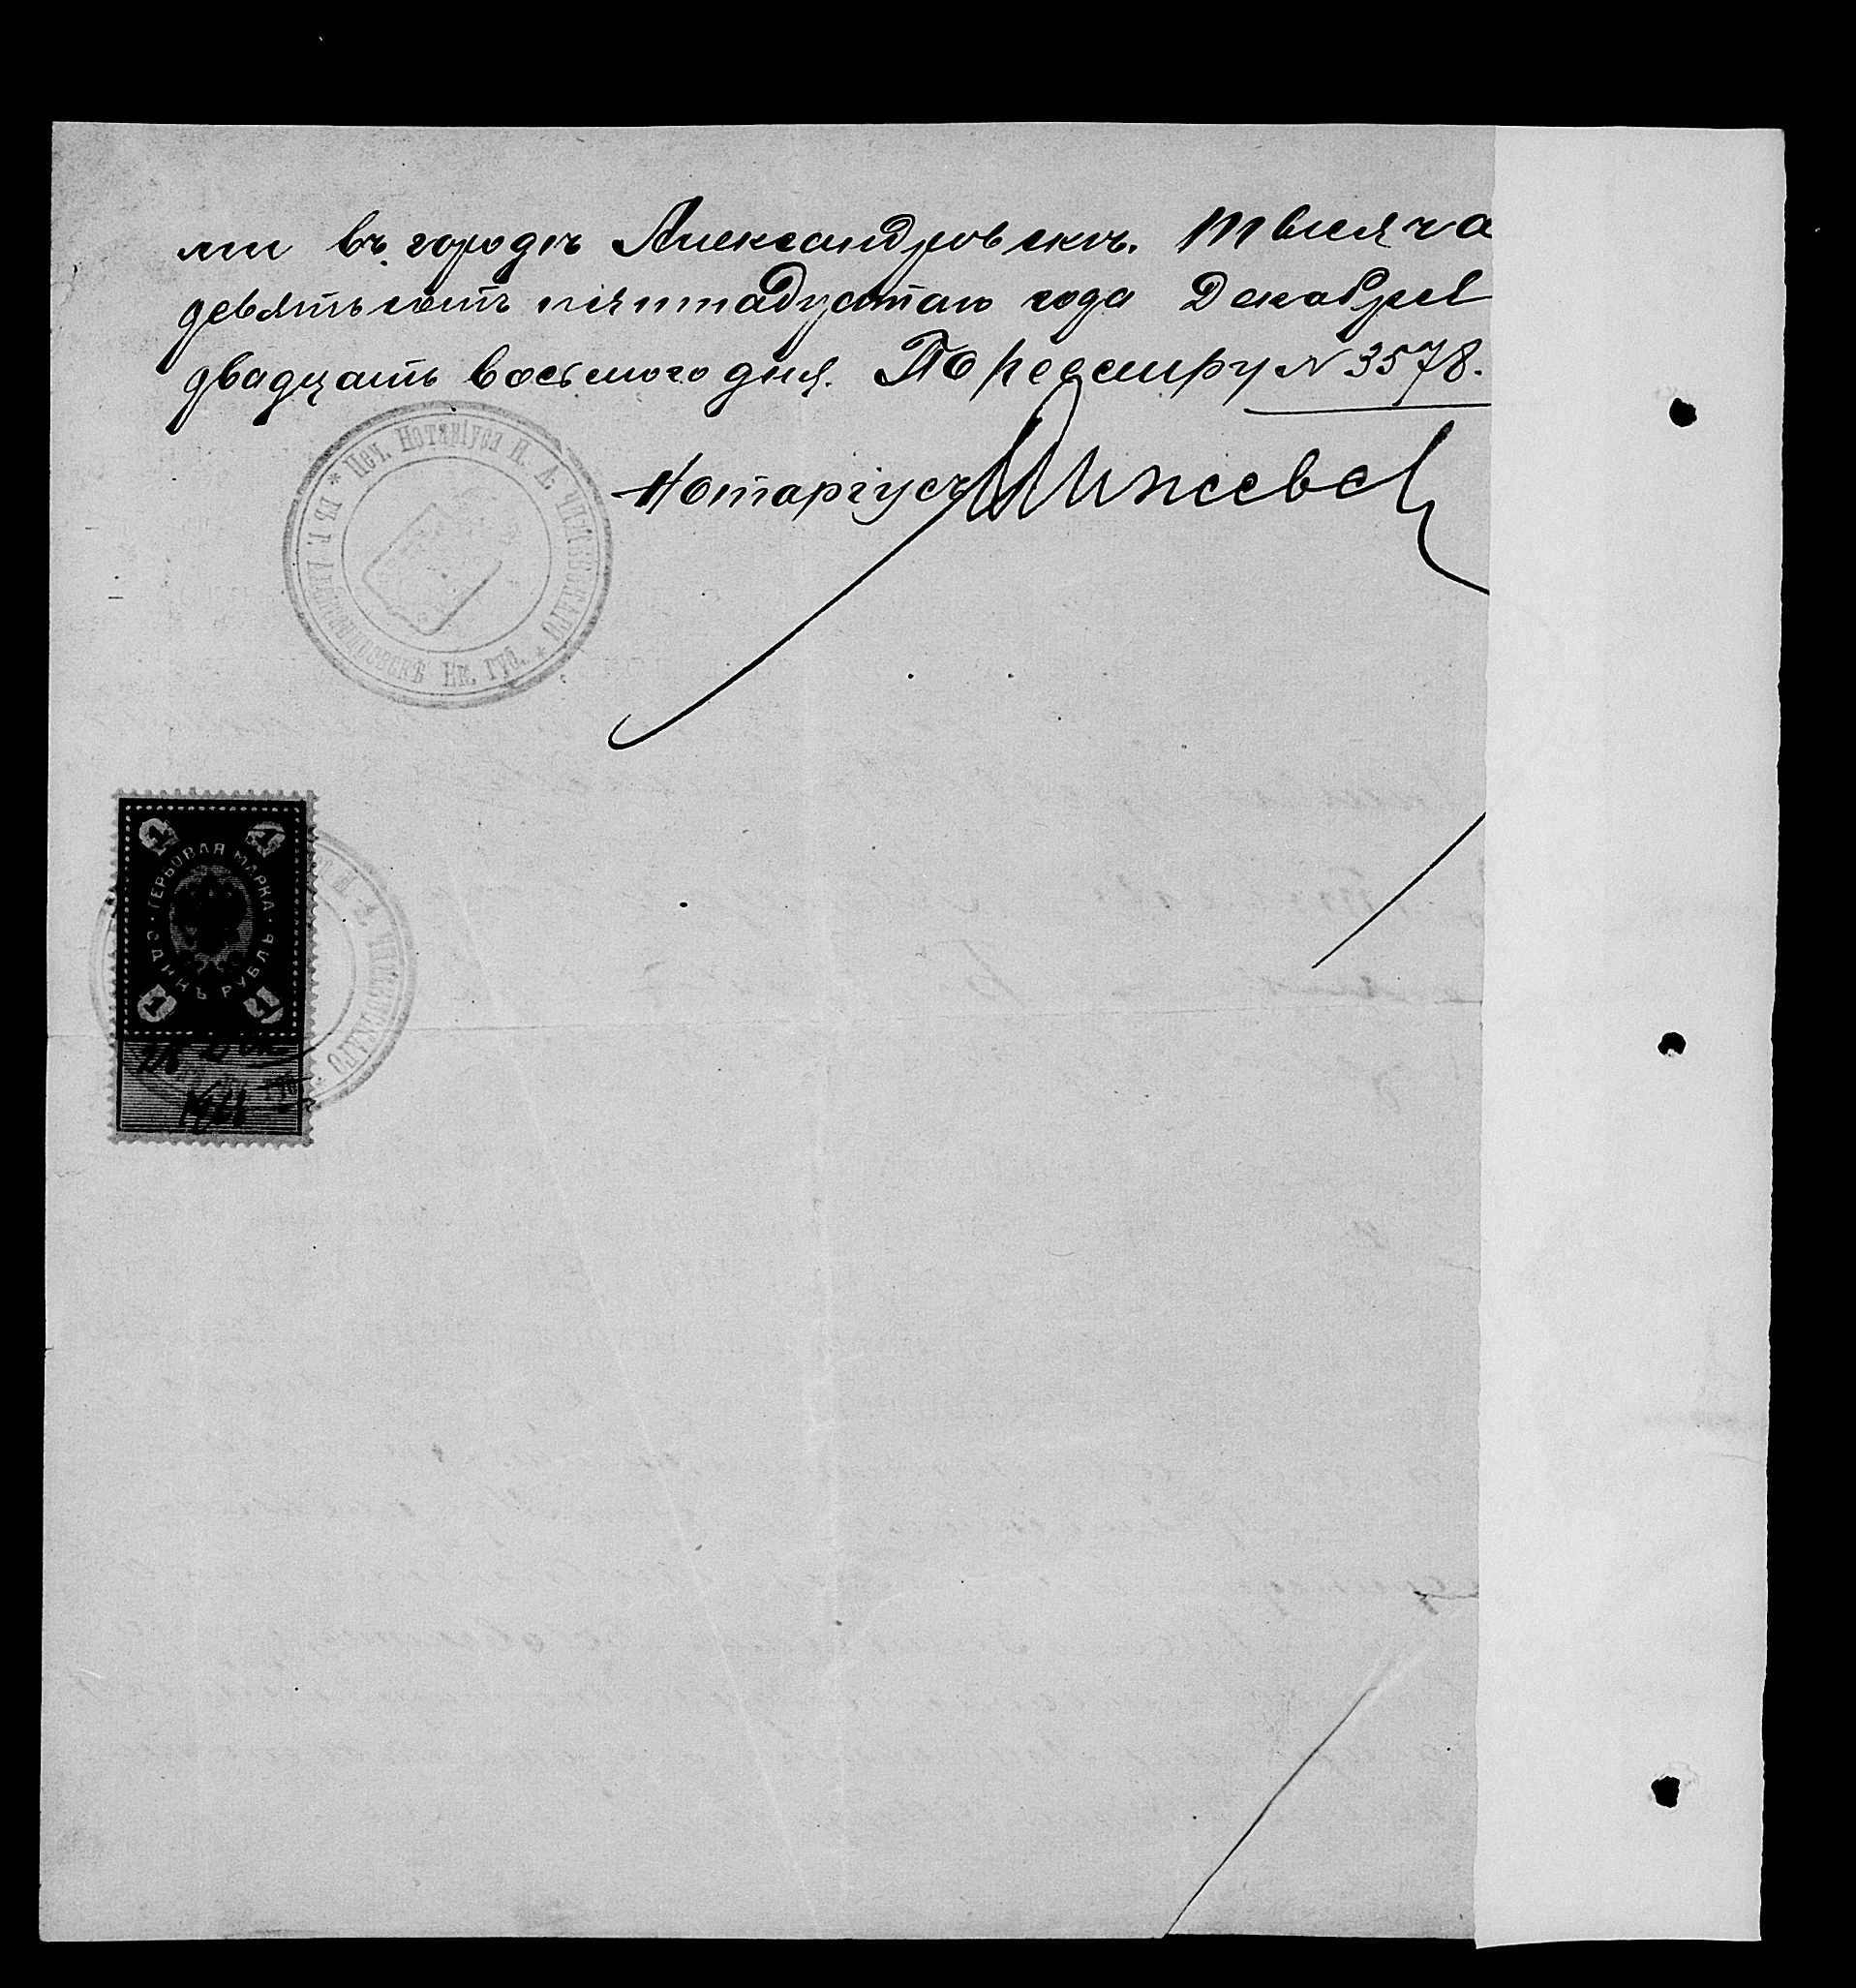 ми въ городѣ Александровскѣ. Тысяча
девятьсотъ пятнадцатаго года Декабря
двадцать восьмого дня. По реестру N 3578.
Нотаріусъ
* Печ. Нотаріуса П. А.
въ г. Александровскѣ Ек. губ. *
ГЕРБОВАЯ МАРКА
ОДИНЪ РУБЛЬ
1 1
1 1
28 Дек